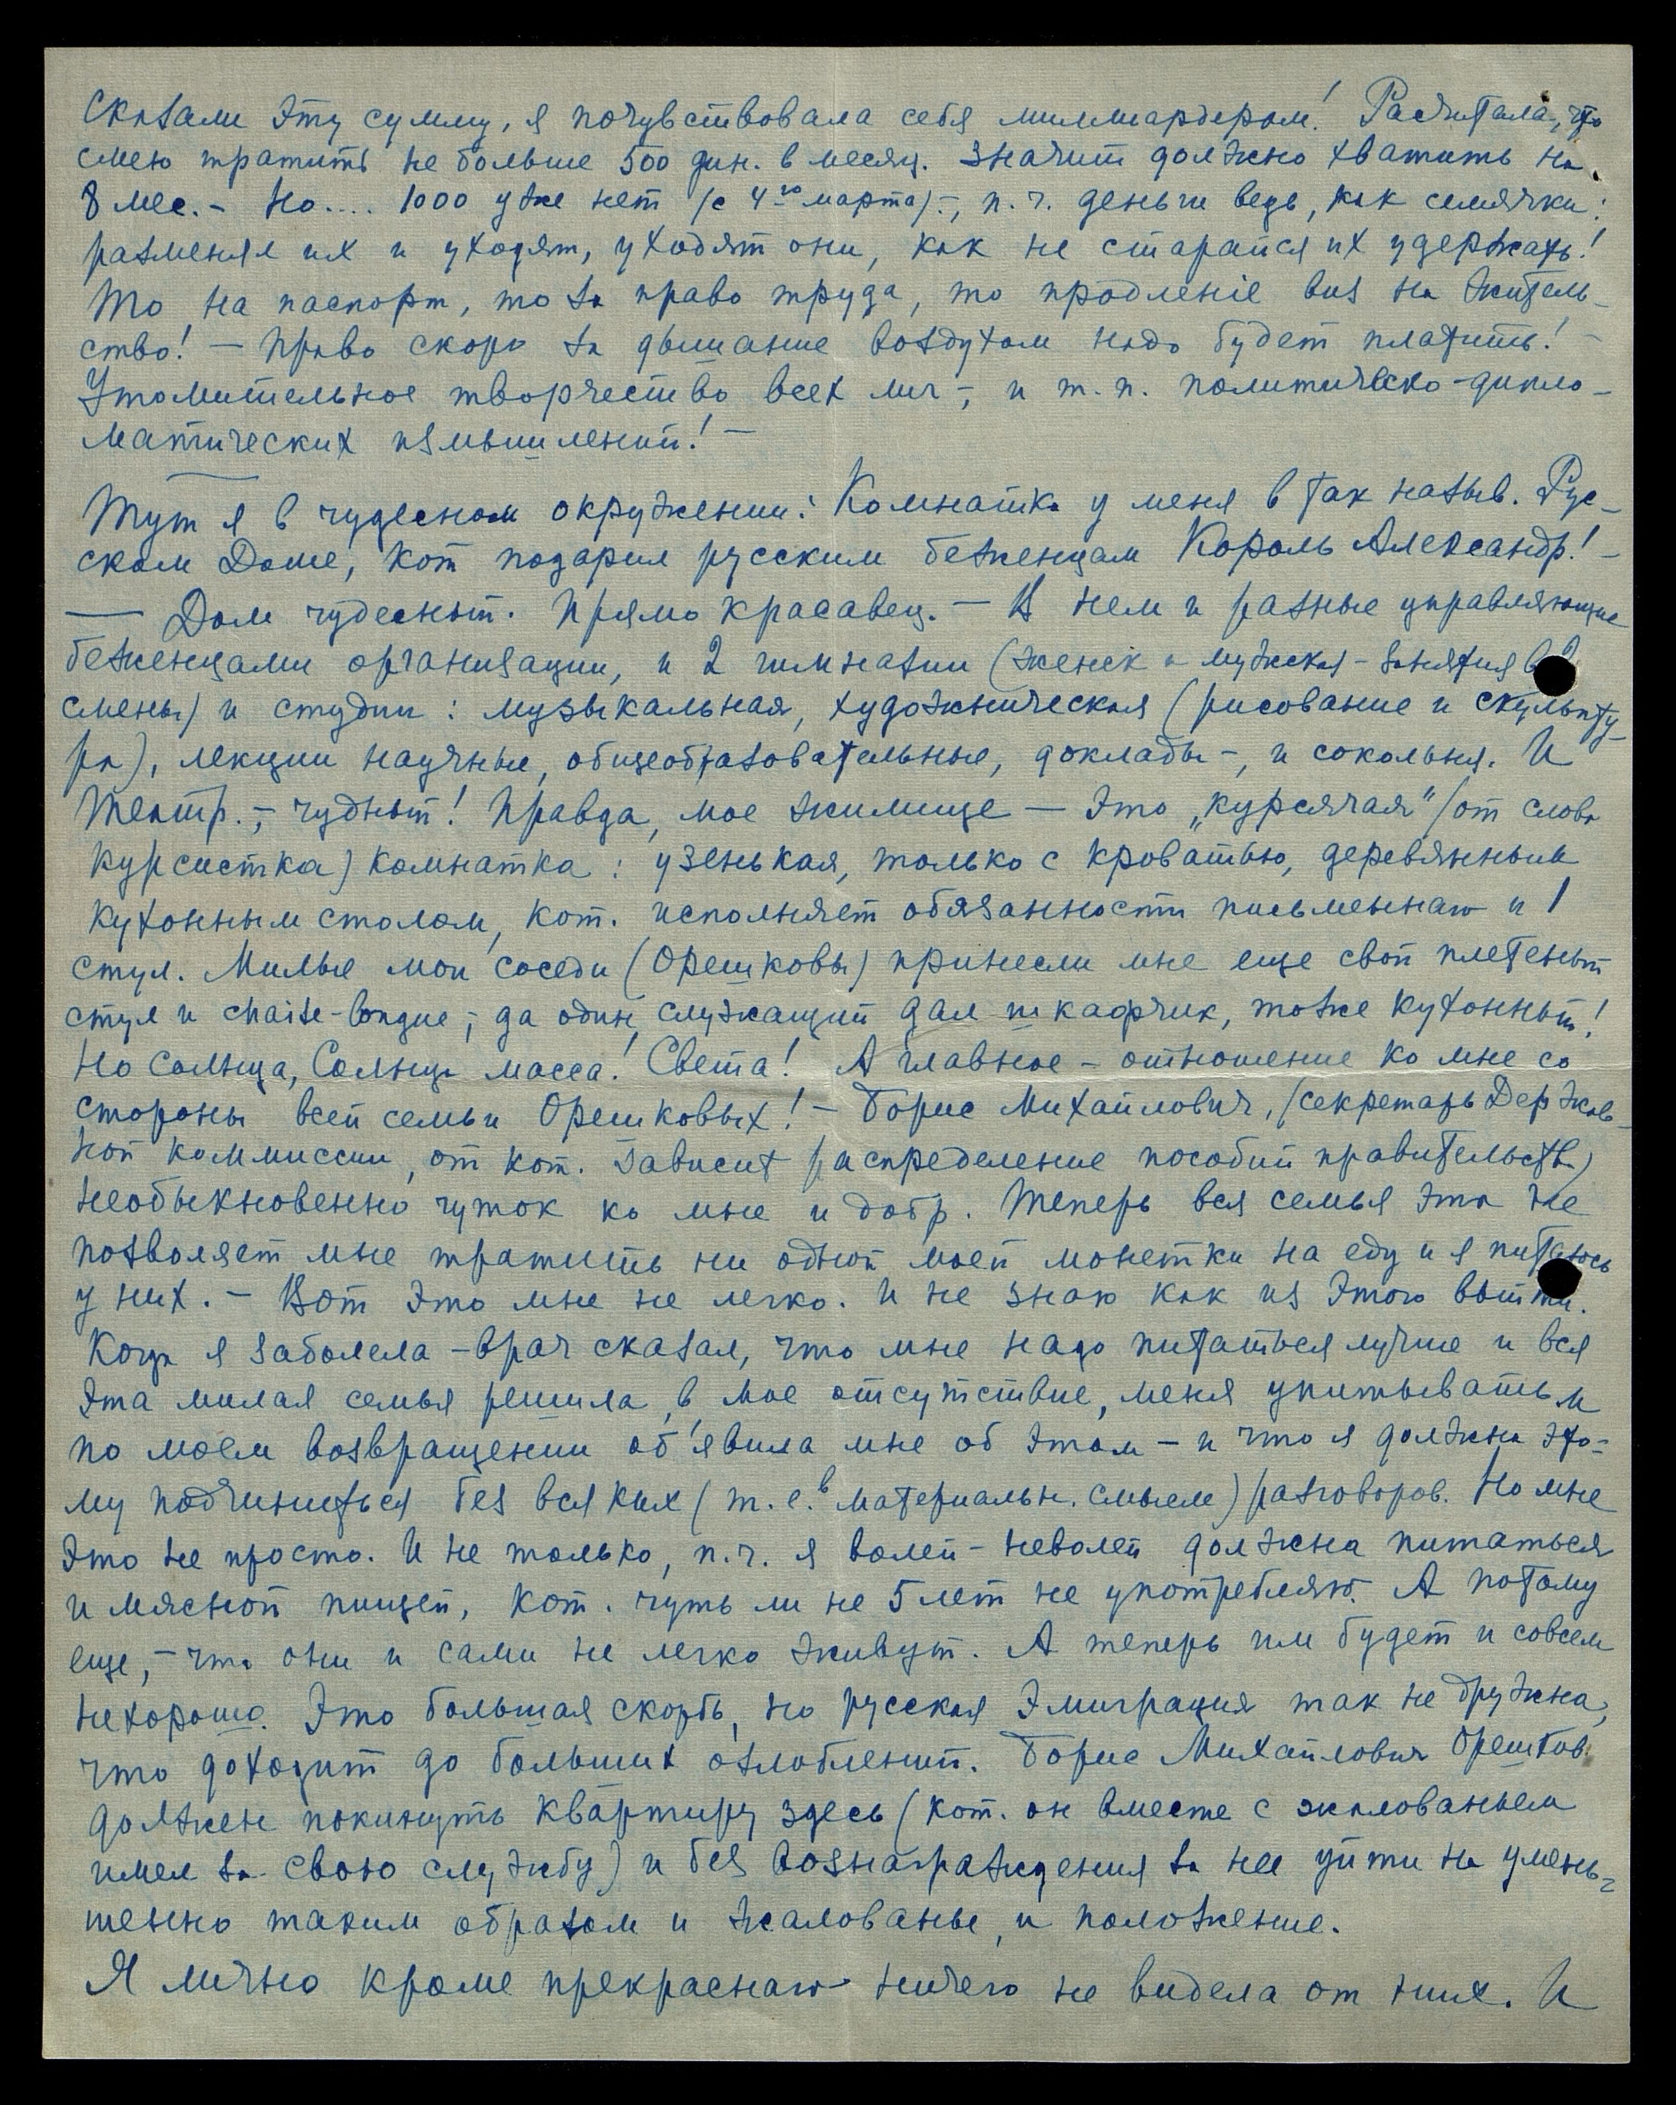 сказали эту сумму, я почувствовала себя миллиардером! Расчитала, что
смею тратить не больше 500 дин. в месяц. Значит должно хватить на
8 мес. – Но.... 1000 уже нет (с 4го марта) –, п. ч. деньги ведь, как семячки:
разменял их и уходят, уходят они, как не старайся их удержать!
То на паспорт, то за право труда, то продленiе виз на житель-
ство! – Право скоро за дыхание воздухом надо будет платить! –
Утомительное творчество всех лич –, и т. п. политическо-дипло-
матических измышлений! –
Тут я в чудесном окружении: Комнатка у меня в так назыв. Рус-
ском Доме, кот подарил русским беженцам Король Александр! –
— Дом чудесный. Прямо красавец. – В нем и разные управляющие
беженцами организации, и 2 гимназии (женск и мужская – занятия в 2
смены) и студии: музыкальная, художническая (рисование и скульпту-
ра), лекции научные, общеобразовательные, доклады –, и сокольня. И
Театр. – чудный! Правда, мое жилище — это „курсячая“ (от слова
курсистка) комнатка: узенькая, только с кроватью, деревянным
кухонным столом, кот. исполняет обязанности письменнаго и 1
стул. Милые мои соседи (Орешковы) принесли мне еще свой плетеный
стул и chaise-longue, – да один служащий дал шкафчик, тоже кухонный!
Но Солнца, Солнца масса! Света! А главное – отношение ко мне со
стороны всей семьи Орешковых! – Борис Михайлович, (секретарь Держав-
ной коммиссии, от кот. зависит распределение пособий правительства)
необыкновенно чуток ко мне и добр. Теперь вся семья эта не
позволяет мне тратить ни одной моей монетки на еду и я питаюсь
у них. – Вот это мне не легко. И не знаю как из этого выйти.
Когда я заболела – врач сказал, что мне надо питаться лучше и вся
эта милая семья решила, в мое отсутствие, меня упитывать и
по моем возвращении об'явила мне об этом – и что я должна это-
му подчиниться без всяких (т. е. в материальн. смысле) разговоров. Но мне
это не просто. И не только, п. ч. я волей-неволей должна питаться
и мясной пищей, кот. чуть ли не 5 лет не употребляю. А потому
еще, – что они и сами не легко живут. А теперь им будет и совсем
нехорошо. Это большая скорбь, но русская эмиграция так не дружна,
что доходит до больших озлоблений. Борис Михайлович Орешков
должен покинуть квартиру здесь (кот. он вместе с жалованьем
имел за свою службу) и без вознаграждения за нее уйти на умень-
шенно таким образом и жалованье, и положение.
Я лично кроме прекраснаго ничего не видела от них. И